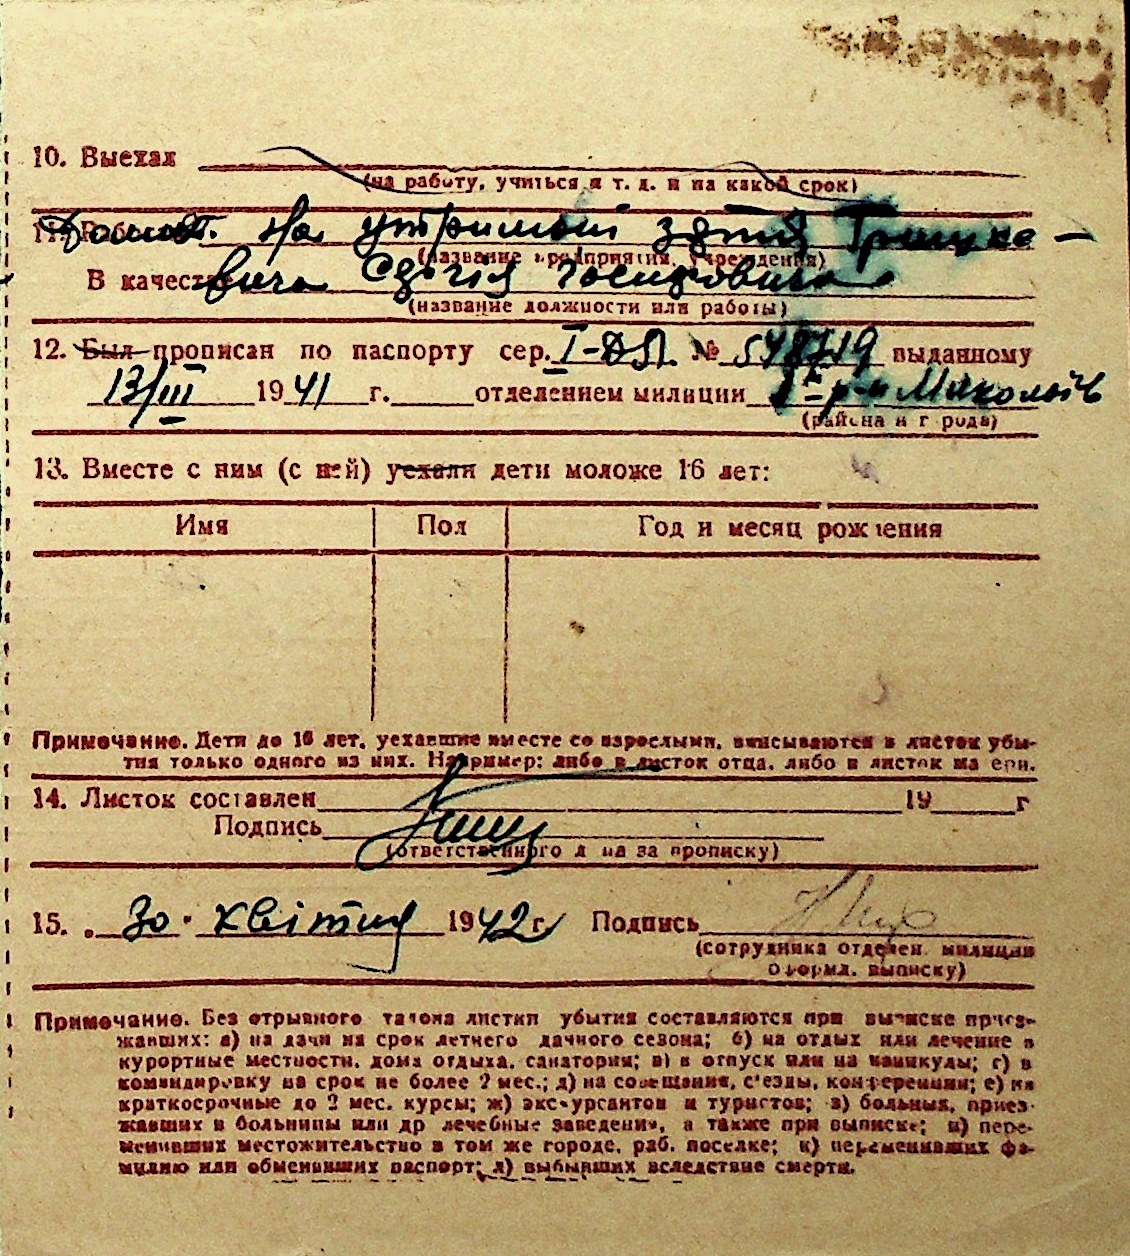 10. Выехал
(на работу, учиться и т. д. и на какой срок)
11. Домогосп. На утриманні зятя Грицке-
(название предприятия, учреждения)
В качестве вича Сергія Йосиповича
(название должности или работы)
12. Был прописан по паспорту сер. I-ДЛ № 548719 выданному
13/III 1941 г. отделением милиции р-н Миколаїв
(района и города)
13. Вместе с ним (с ней) уехали дети моложе 16 лет:
Имя Пол Год и месяц рождения
Примечание. Дети до 16 лет, уехавшие вместе со взрослыми, вписываются в листок убы-
тия только одного из них. Например: либо в листок отца, либо в листок матери.
14. Листок составлен 19 г
Подпись
(ответственного лица за прописку)
15. „ 30 " квітня 1942 г. Подпись
(сотрудника отделен. милиции
оформл. выписку)
Примечание. Без отрывного талона листки убытия составляются при выписке приез-
жавших: а) на дачи на срок летнего дачного сезона; б) на отдых или лечение в
курортные местности, дома отдыха, санатории; в) в отпуск или на каникулы; г) в
командировку на срок не более 2 мес.; д) на совещания, с'езды, конференции; е) на
краткосрочные до 2 мес. курсы; ж) экскурсантов и туристов; з) больных, приез-
жавших в больницы или др лечебные заведения, а также при выписке; и) пере-
менивших местожительство в том же городе, раб. поселке; к) переменивших фа-
милию или обменивших паспорт; л) выбывших вследствие смерти.